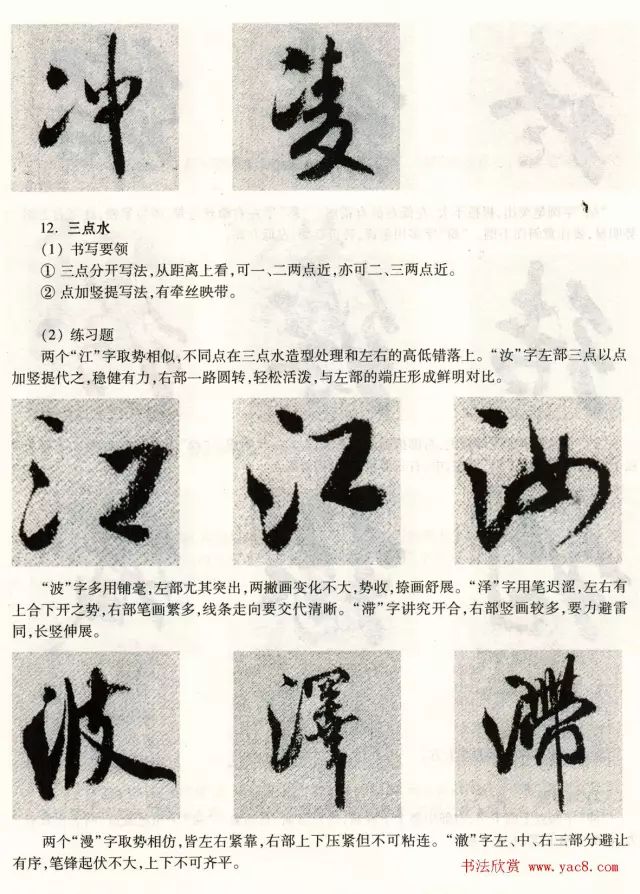 冲 凌
12. 三点水
(1) 书写要领
① 三点分开写法,从距离上看,可一、二两点近,亦可二、三两点近。
② 点加竖提写法,有牵丝映带。
(2) 练习题
两个“江”字取势相似,不同点在三点水造型处理和左右的高低错落上。“汝”字左部三点以点
加竖提代之,稳健有力,右部一路圆转,轻松活泼,与左部的端庄形成鲜明对比。
江 江 汝
“波”字多用铺毫,左部尤其突出,两撇画变化不大,势收,捺画舒展。“泽”字用笔迟涩,左右有
上合下开之势,右部笔画繁多,线条走向要交代清晰。“滞”字讲究开合,右部竖画较多,要力避雷
同,长竖伸展。
波 澤 滯
两个“漫”字取势相仿,皆左右紧靠,右部上下压紧但不可粘连。“澈”字左、中、右三部分避让
有序,笔锋起伏不大,上下不可齐平。
书法欣赏 www.yac8.com